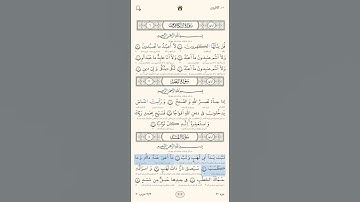 سُورَةُ الكَافِرُونَ
بِسْمِ ٱللَّهِ ٱلرَّحْمَٰنِ ٱلرَّحِيمِ
قُلْ يَٰٓأَيُّهَا ٱلْكَٰفِرُونَ ١ لَآ أَعْبُدُ مَا تَعْبُدُونَ ٢
وَلَآ أَنتُمْ عَٰبِدُونَ مَآ أَعْبُدُ ٣ وَلَآ أَنَا۠ عَابِدٌ مَّا عَبَدتُّمْ ٤
وَلَآ أَنتُمْ عَٰبِدُونَ مَآ أَعْبُدُ ٥ لَكُمْ دِينُكُمْ وَلِىَ دِينِ ٦
سُورَةُ النَّصْرِ
بِسْمِ ٱللَّهِ ٱلرَّحْمَٰنِ ٱلرَّحِيمِ
إِذَا جَآءَ نَصْرُ ٱللَّهِ وَٱلْفَتْحُ ١ وَرَأَيْتَ ٱلنَّاسَ
يَدْخُلُونَ فِى دِينِ ٱللَّهِ أَفْوَاجًا ٢ فَسَبِّحْ بِحَمْدِ رَبِّكَ
وَٱسْتَغْفِرْهُ إِنَّهُۥ كَانَ تَوَّابًۢا ٣
سُورَةُ المَسَدِ
بِسْمِ ٱللَّهِ ٱلرَّحْمَٰنِ ٱلرَّحِيمِ
تَبَّتْ يَدَآ أَبِى لَهَبٍ وَتَبَّ ١ مَآ أَغْنَىٰ عَنْهُ مَالُهُۥ وَمَا
كَسَبَ ٢ سَيَصْلَىٰ نَارًا ذَاتَ لَهَبٍ ٣ وَٱمْرَأَتُهُۥ
حَمَّالَةَ ٱلْحَطَبِ ٤ فِى جِيدِهَا حَبْلٌ مِّن مَّسَدٍۭ ٥